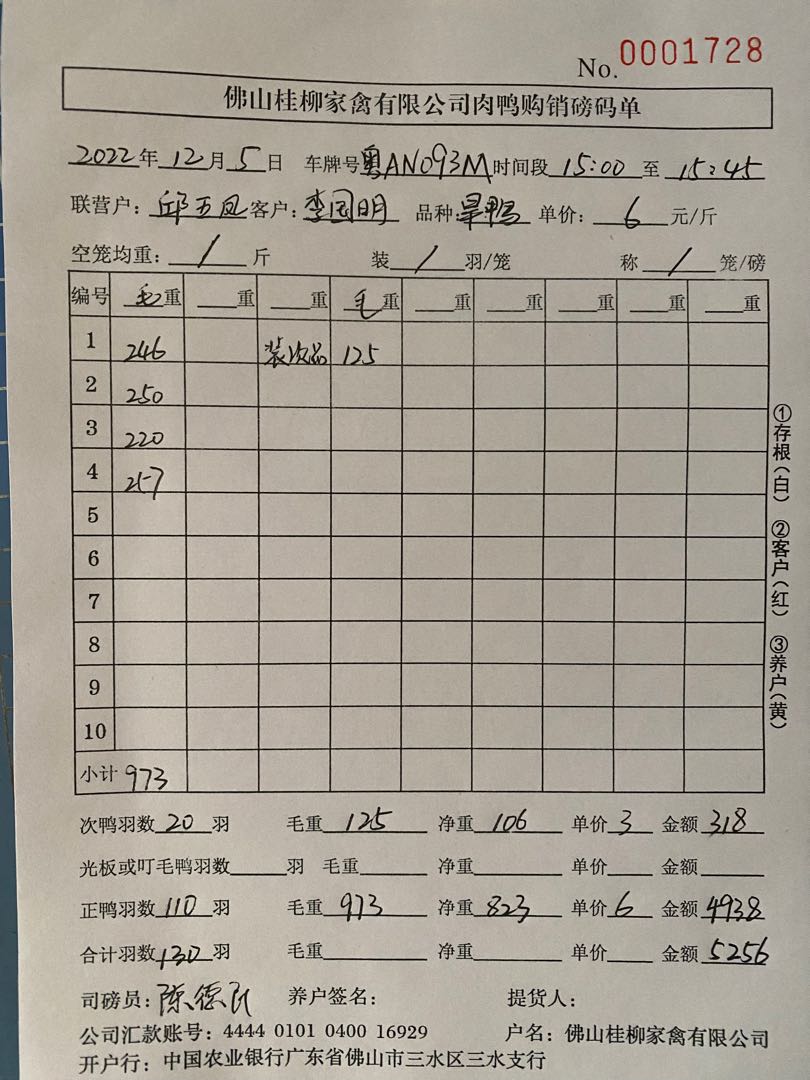 No. 0001728
佛山桂柳家禽有限公司肉鸭购销磅码单
2022年12月5日 车牌号粤AN093M时间段15:00至15:45
联营户:邱五凤客户:李国明 品种:旱鸭 单价:6元/斤
空笼均重:/斤 装/羽/笼 称/笼/磅
编号 毛重 重 重 毛重 重 重 重 重 重
1 246 装次品 125
2 250
3 220
4 257
5
6
7
8
9
10
小计 973
次鸭羽数20羽 毛重125 净重106 单价3 金额318
光板或叮毛鸭羽数 羽 毛重 净重 单价 金额
正鸭羽数110羽 毛重973 净重823 单价6 金额4938
合计羽数130羽 毛重 净重 单价 金额5256
司磅员:陈德 养户签名: 提货人:
公司汇款账号:4444 0101 0400 16929 户名:佛山桂柳家禽有限公司
开户行:中国农业银行广东省佛山市三水区三水支行
①存根(白) ②客户(红) ③养户(黄)